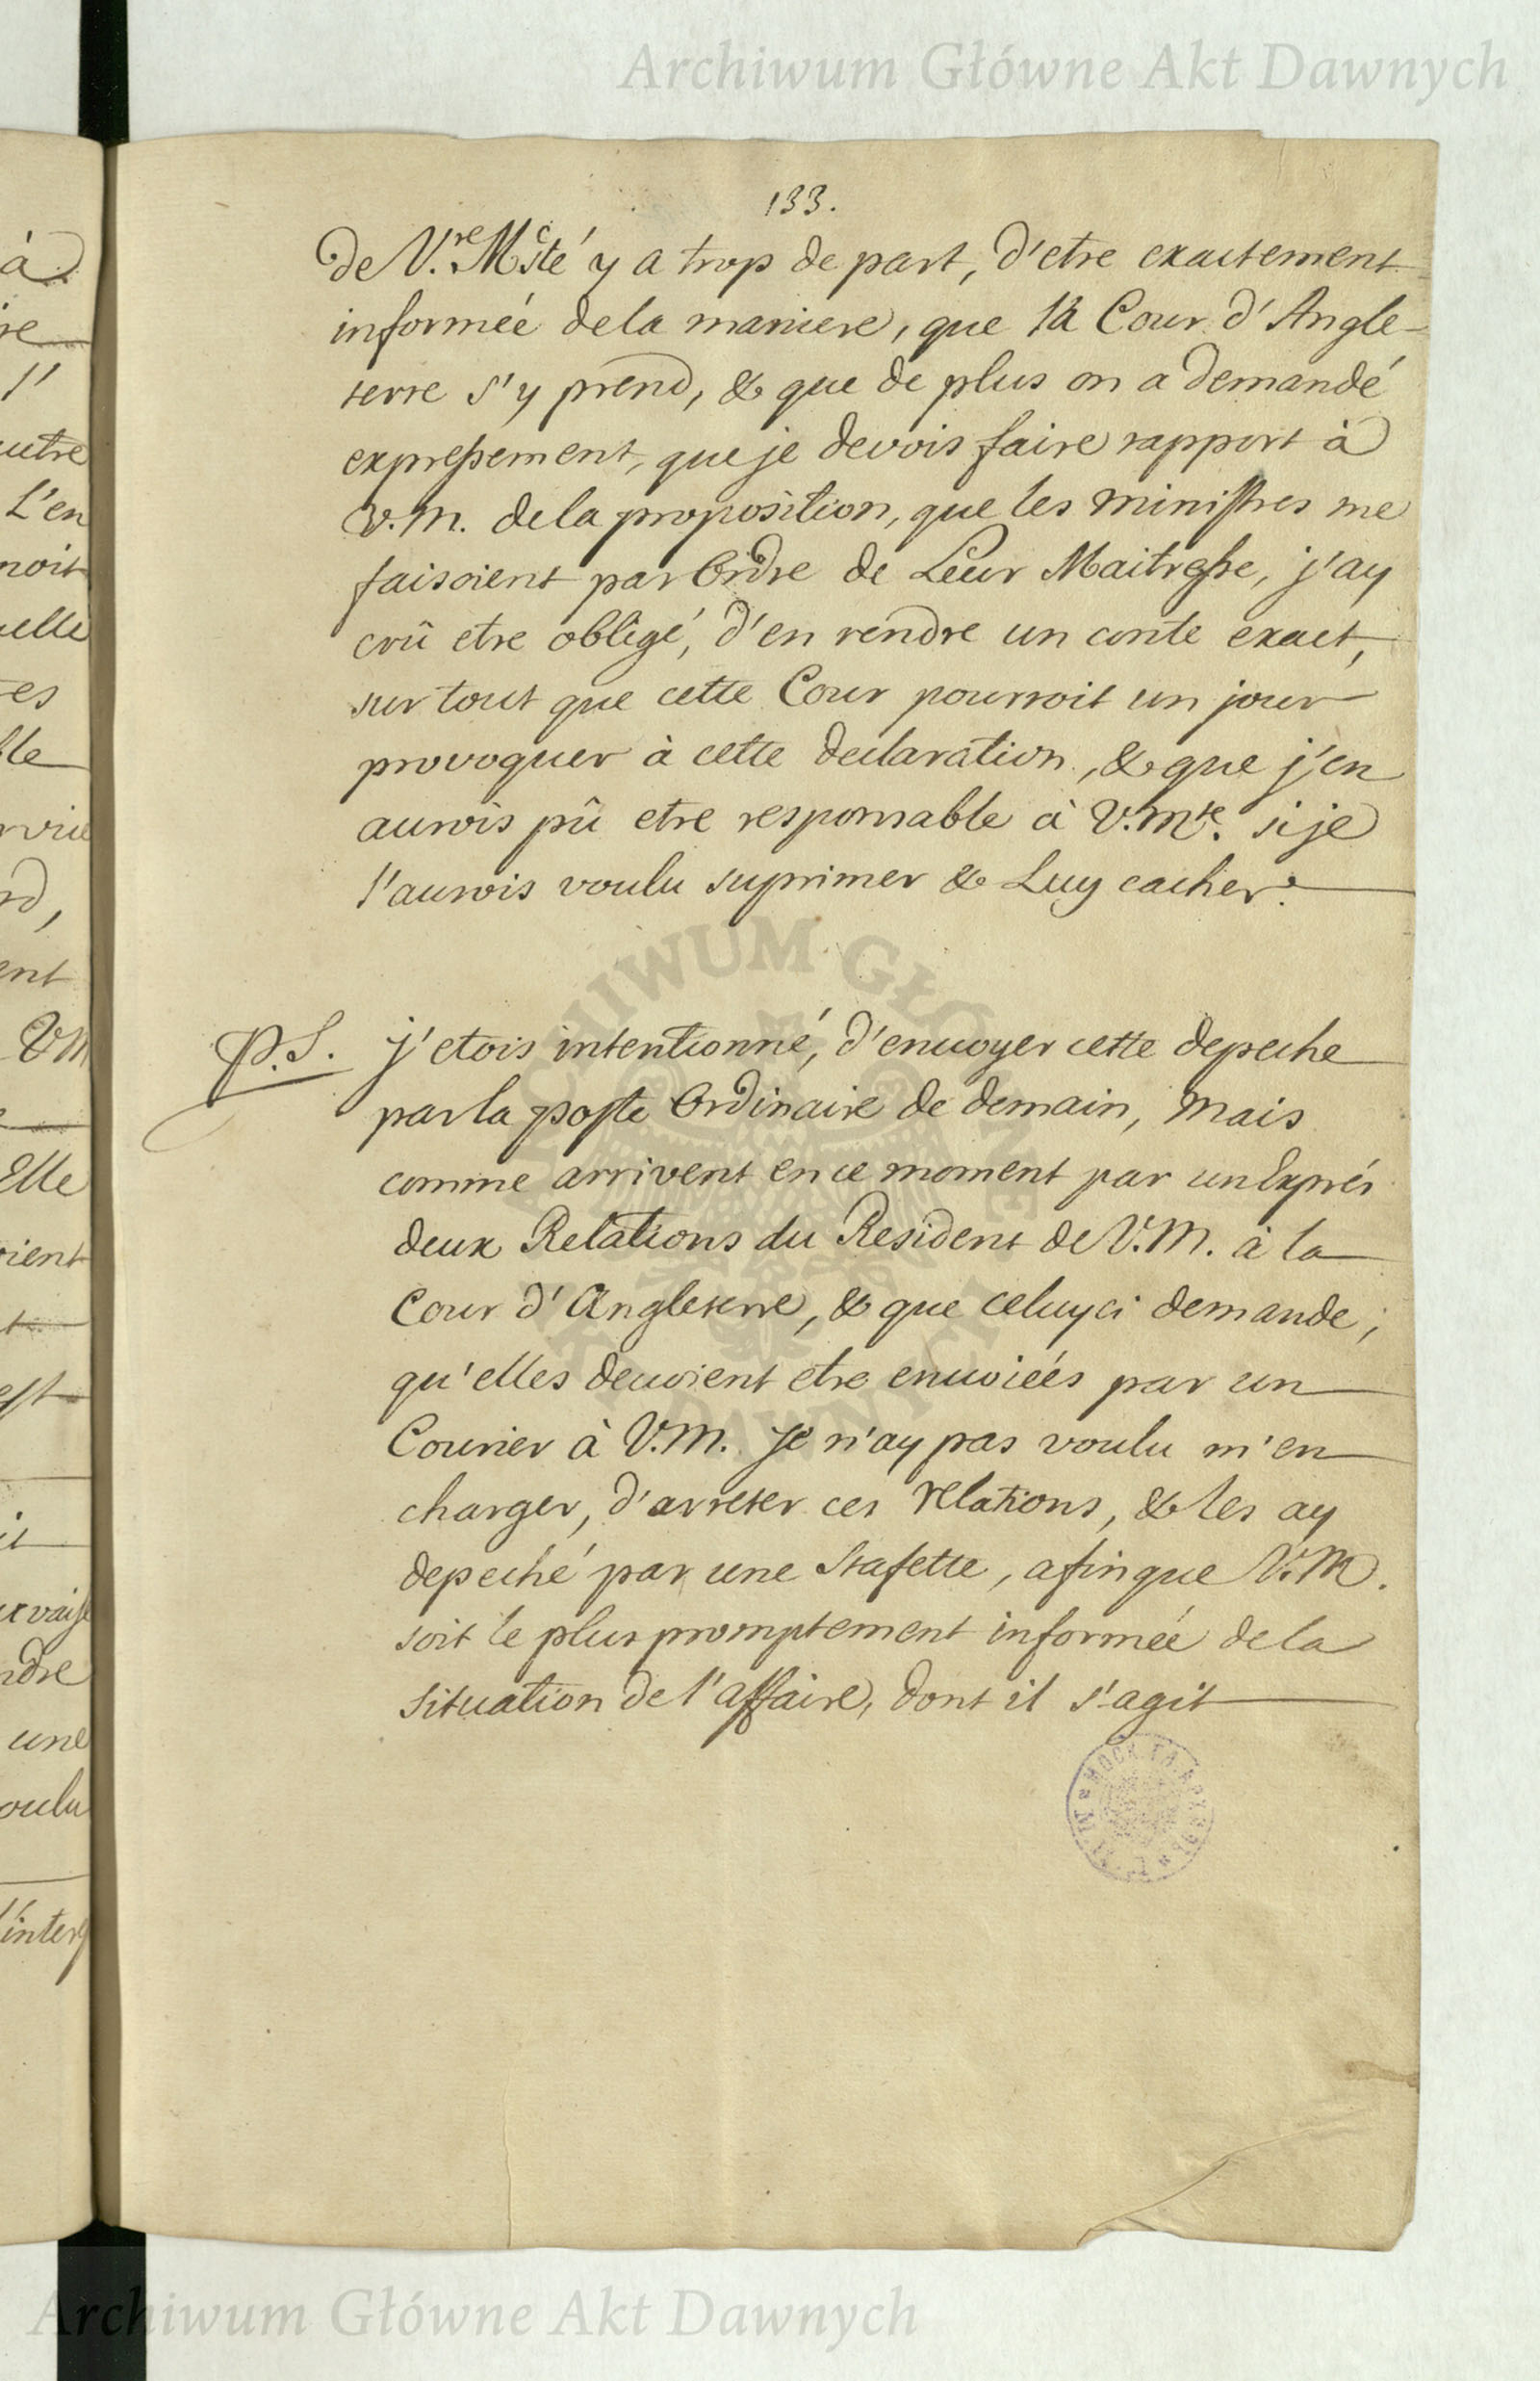 Archiwum Główne Akt Dawnych
133.
de V.re Mcsté y a trop de part, d'etre exactement
informéé dela maniere, que la Cour d'Angle-
terre s'y prend, & que de plus on a demandé
expressement, que je devois faire rapport à
V.M. dela proposition, que les ministres me
faisoient par Ordre de Leur Maitresse, j'ay
crû etre obligé, d'en rendre un conte exact,
sur tout que cette Cour pourroit un jour
provoquer à cette declaration, & que j'en
aurois pû etre responsable à V.Mté. si je
l'aurois voulu suprimer & Luy cacher.
P.S. j'etois intentionné, d'envoyer cette depeche
par la poste Ordinaire de demain, mais
comme arrivent en ce moment par un Exprés
deux Relations du Resident de V.M. à la
Cour d'Angleterre, & que celuy ci demande,
qu'elles devoient etre envoiéés par un
Courier à V.M. Je n'ay pas voulu m'en
charger, d'arreter ces relations, & les ay
depeché par une Stafette, afin que V.M.
soit le plus promptement informéé dela
situation de l'affaire, dont il s'agit
à
re
l'
utre
L'en
noit
uelle
es
ble
rd,
ent
VM
Elle
oient
est
it
uvaise
ndre
une
oulu
l'inter
ARCHIWUM GŁÓWNE
AKT DAWNYCH
Archiwum Główne Akt Dawnych